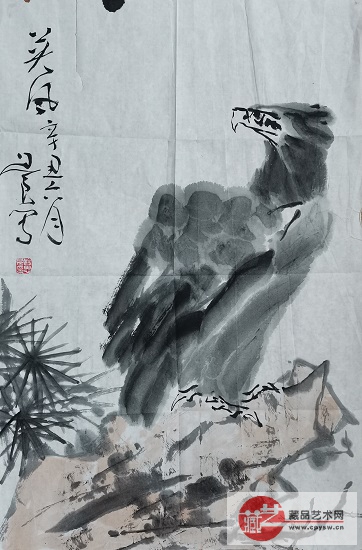 英风
辛丑六月
写
艺
藏
藏品艺术网
www.cpysw.cn